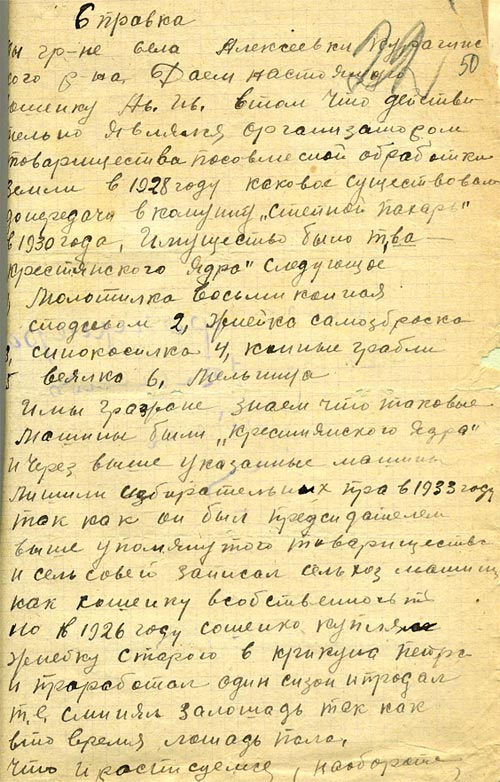 Справка
50
Мы гр-не села Алексеевки Курагинс
кого р-на, Даем настоящую
сошенку Ив. Ив. втом что действи
тельно являлся организатором
товарищества посовмесной обработки
земли в 1928 году каковое существовало
допередачи в комуну „Степной пахарь"
в 1930 года, Имущество было т,ва
крестянского Ядра" следующее
Молотилка восьми конная
сподсевом 2, жнейка самозброска
3, синокосилка 4, конные грабли
5 веялко 6, Мельница
Имы гразране, знаем что таковые
машины были „крестиянского Ядра"
и через выше указанные машины
лишили избирательных пра в 1933 году
так как он был предсидателем
выше упомянутого товарищества
и сельсовет записал сельхоз машины
как сошенку всобственность
но в 1926 году сошенко куплял
жнейку старого в крикуна петра
и проработал один сизон ипродал
т.е. сминял залошадь так как
вто время лошадь пала,
что и расписуемся,